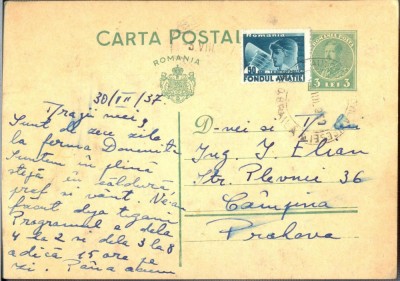 CARTA POSTALĂ
ROMANIA
ROMANIA
50
FONDUL AVIAȚIEI
5 LEI 5
30/VII/37.
Dragii mei,
Sunt de zece zile
la ferma Domnitei
Suntem în plină
stepă în călduri,
praf și vânt. Ne-am
făcut deja țigani
Programul e dela
4 la 2 și dela 3 la 8
adică 15 ore pe
zi. Până acum
D-nei și
Ing. I. Elian
Str. Plevnei 36
Câmpina
Prahova